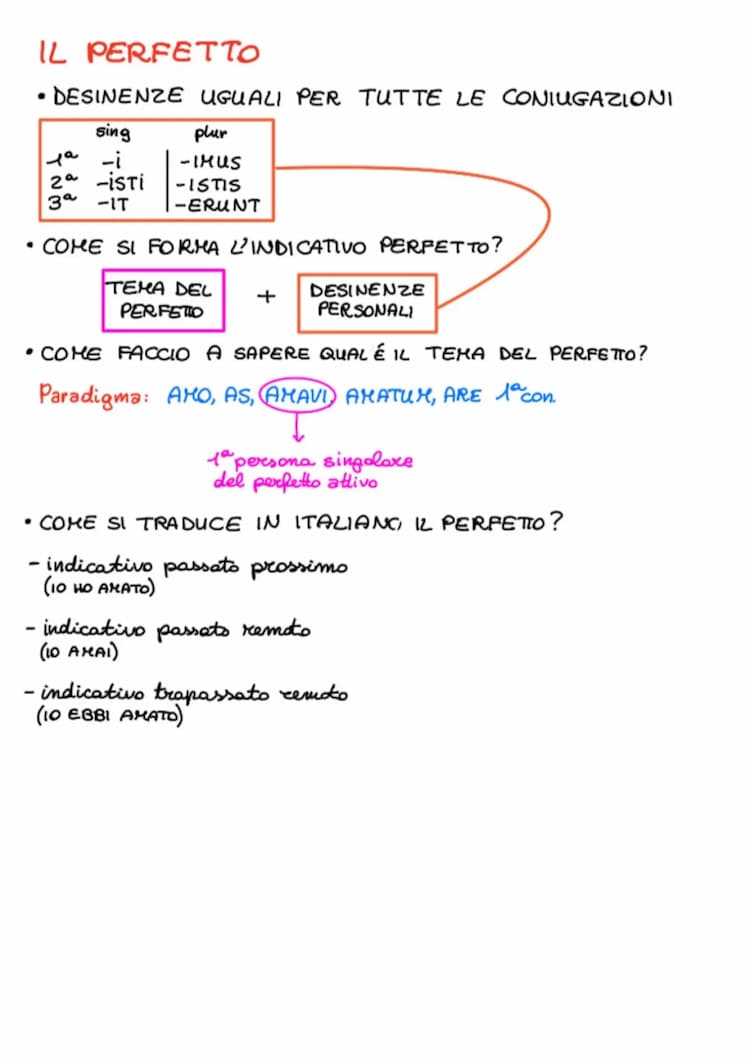 IL PERFETTO
• DESINENZE UGUALI PER TUTTE LE CONIUGAZIONI
sing plur
1ª -i -IMUS
2ª -iSTi -ISTIS
3ª -IT -ERUNT
• COME SI FORMA L'INDICATIVO PERFETTO?
TEMA DEL PERFETTO + DESINENZE PERSONALI
• COME FACCIO A SAPERE QUAL É IL TEMA DEL PERFETTO?
Paradigma: AMO, AS, AMAVI, AMATUM, ARE 1ª con.
1ª persona singolare
del perfetto attivo
• COME SI TRADUCE IN ITALIANO IL PERFETTO?
- indicativo passato prossimo
(IO HO AMATO)
- indicativo passato remoto
(IO AMAI)
- indicativo trapassato remoto
(IO EBBI AMATO)